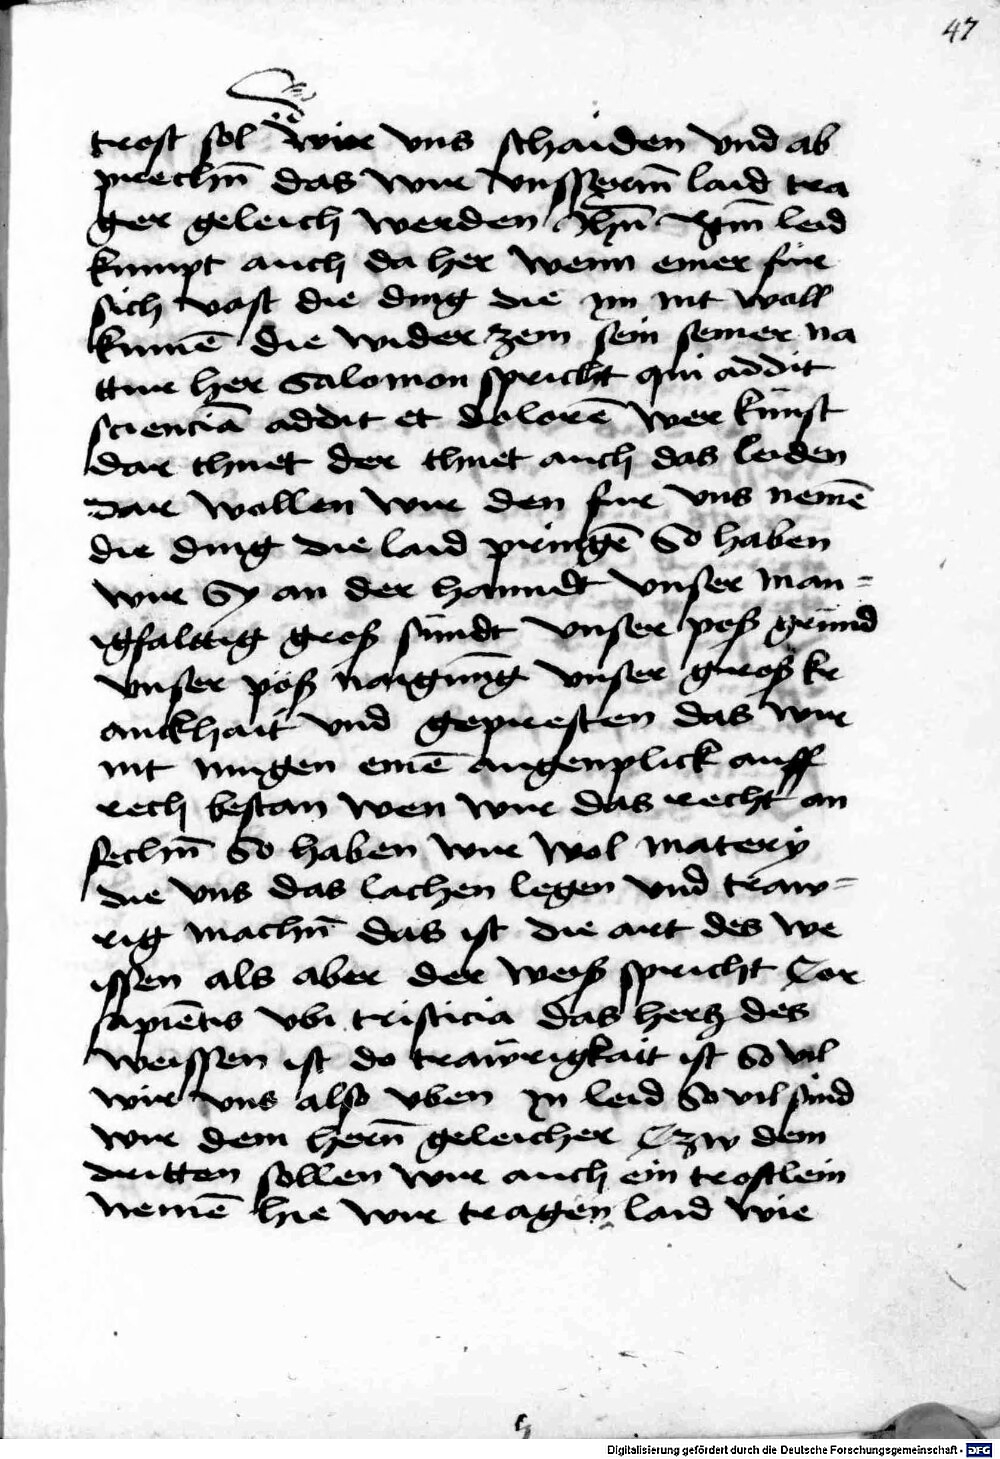 47
trost sol wir vns schaiden vnd ab
prechn̄ das wir vnsserm̄ laid tra
ger geleich werden Jhn̄ leid
kumpt auch da her wenn einer für
sich vast die ding die im nit woll
kumē die wider zem sein seiner na
ttur her Salomon spricht qui addit
scienciā addit et dolorē wer kunst
dar thuet der thuet auch das leiden
dar wollen wir den fur vns nemē
die ding die laid pringē So haben
wir Sy an der hanndt vnser man=
igfalttig groß sündt vnser poß gründ
vnser poß naigung vnser groß kr
anckhait vnd gepresten das wir
nit mugen einē augenplick auff
rech bestan wen wir das recht an
sechn̄ So haben wir wol matery
die vns das lachen legen vnd traw=
rig machn̄ das ist die art des we
issen als aber der weiß spricht Cor
sapiētis vbi tristicia das hertz des
weissen ist do trawrigkait ist So vil
wir vns also vben in leid So vil sind
wir dem hern̄ geleicher Czw dem
dritten sollen wir auch ein trostlein
nemē hie wir tragen laid wie
Digitalisierung gefördert durch die Deutsche Forschungsgemeinschaft - DFG